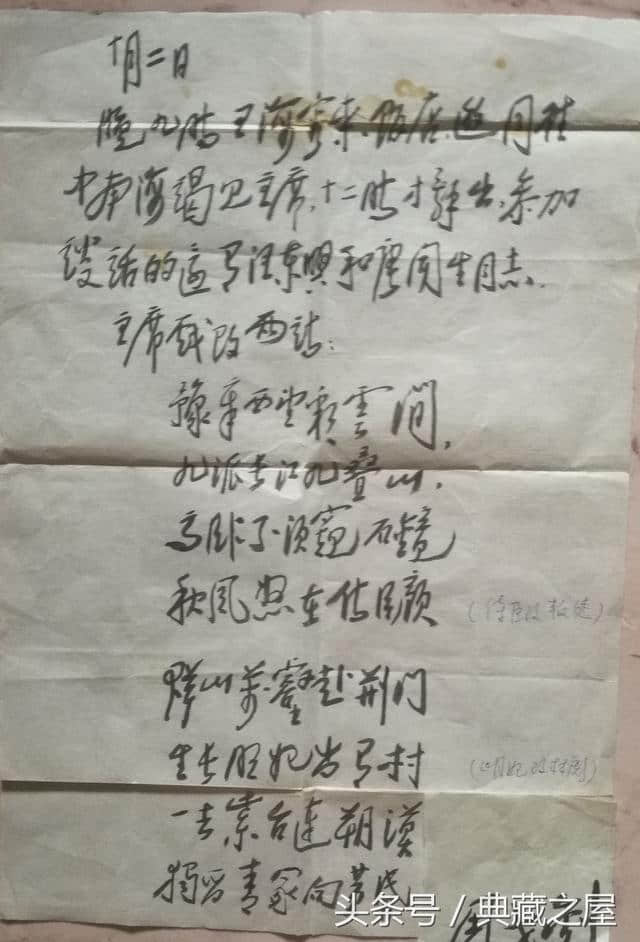 十月二日
晚九时王海容来饭店邀同往
中南海谒见主席，十二时才辞出，参加
谈话的还有汪东興和唐闻生同志.
主席戏改两诗：
豫章西望彩雲间，
九派长江九叠山，
高卧不须窥石镜
秋风 在侍臣颜 (侍臣改叛徒)
群山万壑赴荆门
生长明妃尚有村 (明妃改林彪)
一去紫台连朔漠
獨留青冢向黄昏
头条号 / 典藏之屋